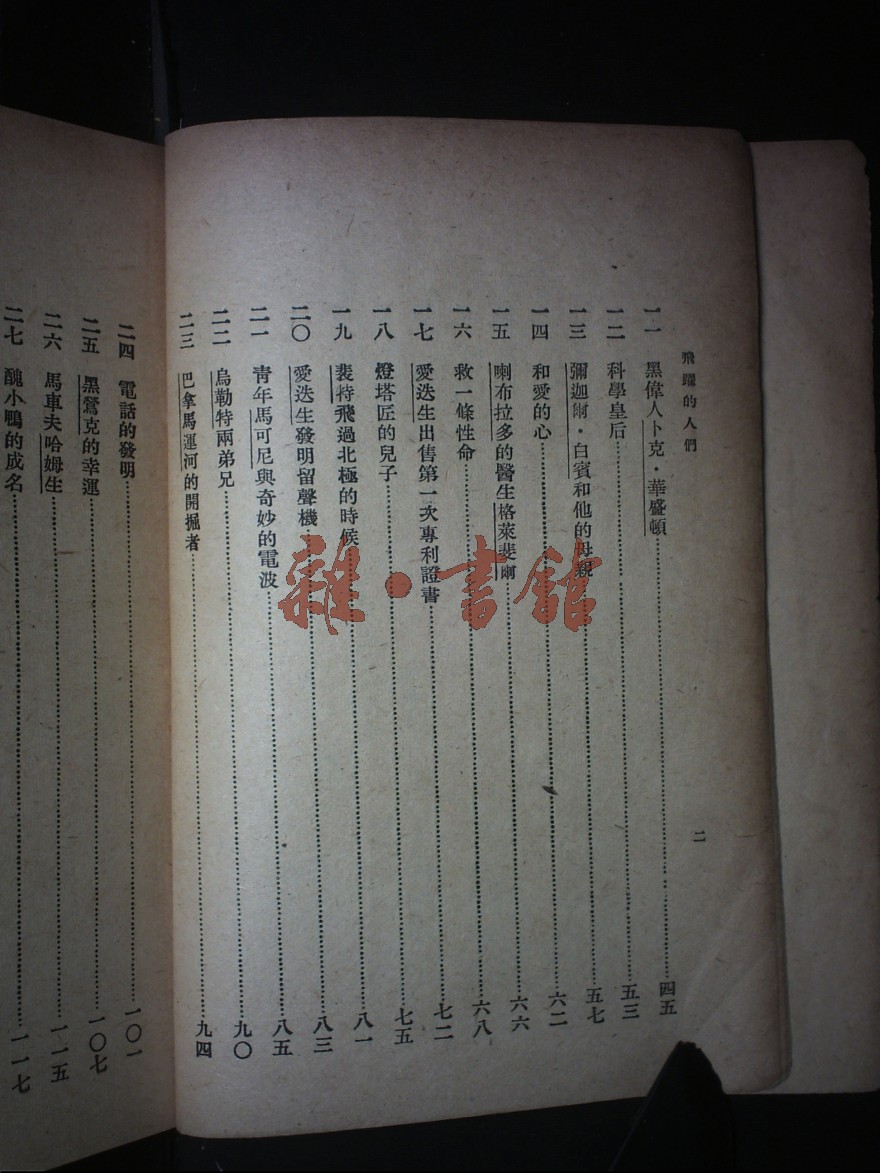 飛躍的人們
二
一一 黑偉人卜克·華盛頓 四五
一二 科學皇后 五三
一三 彌迦爾·白賓和他的母親 五七
一四 和愛的心 六二
一五 喇布拉多的醫生格萊斐爾 六六
一六 救一條性命 六八
一七 愛迭生出售第一次專利證書 七二
一八 燈塔匠的兒子 七五
一九 裴特飛過北極的時候 八一
二〇 愛迭生發明留聲機 八三
二一 青年馬可尼與奇妙的電波 八五
二二 烏勒特兩弟兄 九〇
二三 巴拿馬運河的開掘者 九四
二四 電話的發明 一〇一
二五 黑鶯克的幸運 一〇七
二六 馬車夫哈姆生 一一五
二七 醜小鴨的成名 一一七
雜·書館